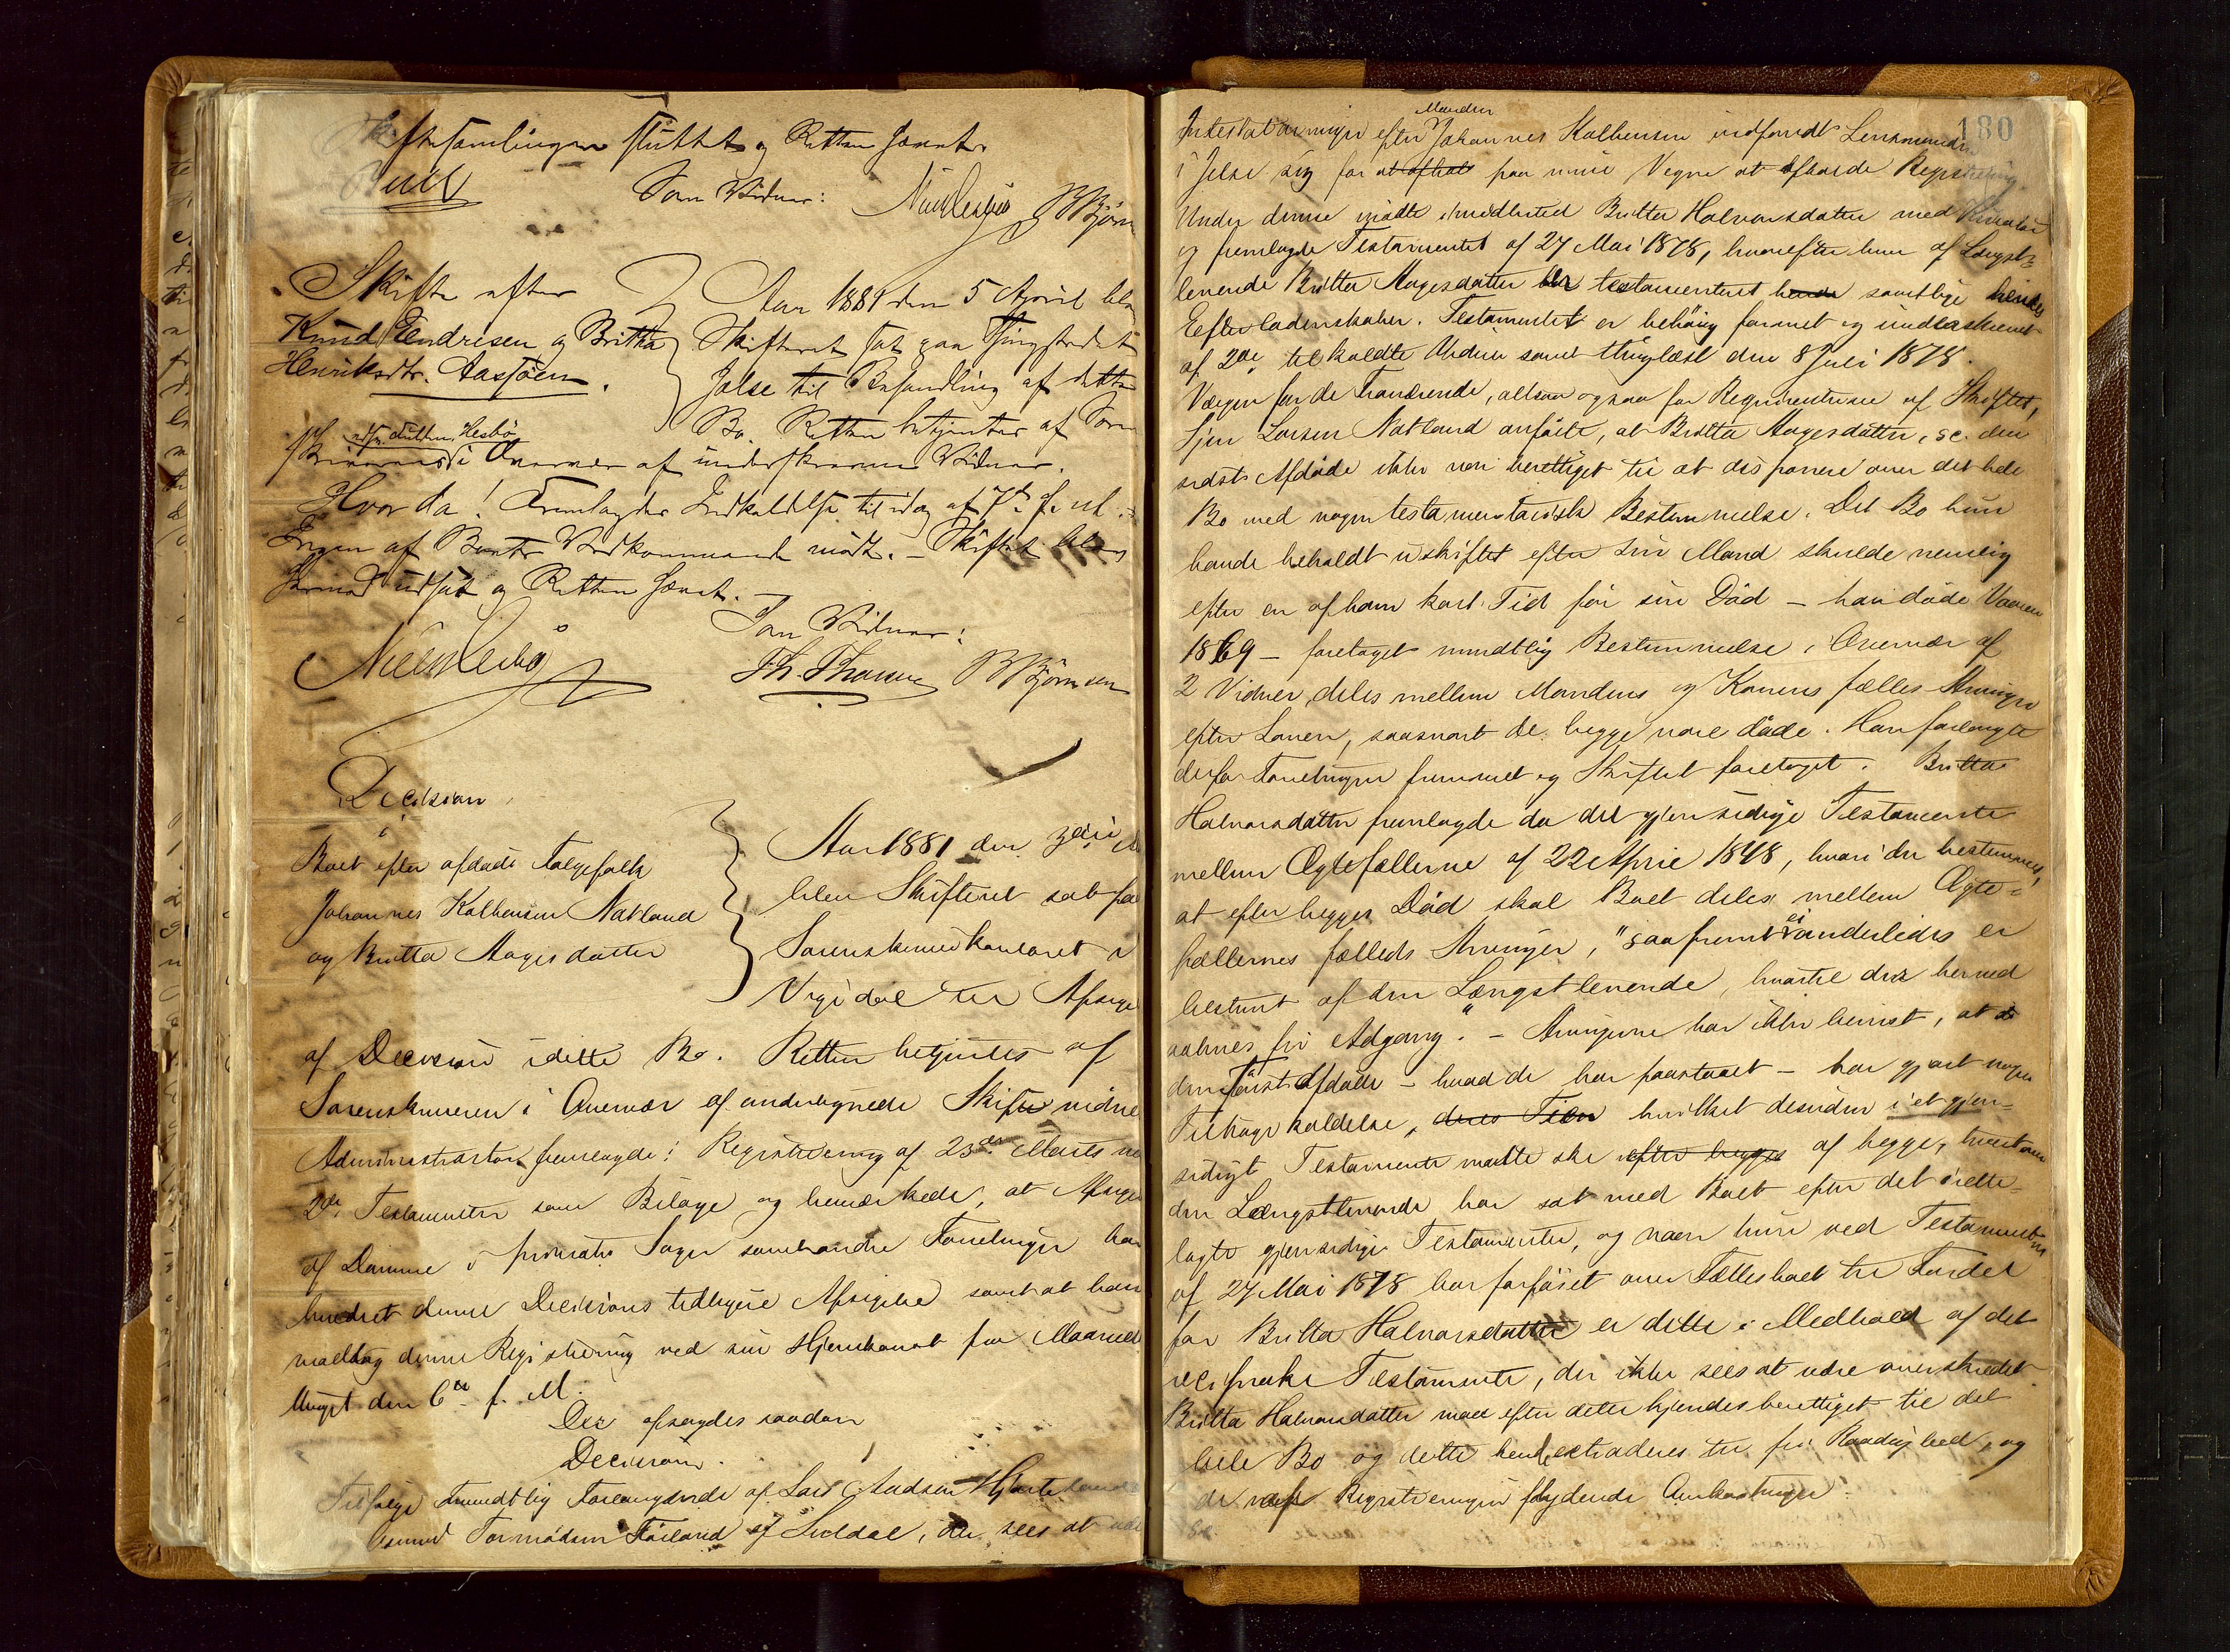 Skiftesamlingen sluttet og Retten hævet.
Som Vidner: BBjørn
Skifte efter
Knud Eendresen og Britha
Henriksdtr. Aasjøen.
Aar 1881 den 5 April blev
Skifteret sat paa Thingstedet
Jelse til Behandling af dette
Bo. Retten betjentes af Soren
skriverens i Overvær af underskrevne Vidner.
Hvor da! Fremlagdes Indkaldelse til idag af 7de f.
Ingen af Boets Vedkommende mødte. – Skiftet blev
hermed udsat og Retten hævet. –
Som Vidner:
Th. Thorsen BBjørnsen
Decision
i
Boet efter afdøde Følgefolk
Johannes Kolbensen Natland
og Britta Aagesdatter
Aar 1881 den
blev Skifteret sat paa
Sorenskriverkontoret i
til Afsige
af Decision i dette Bo. Retten betjentes af
Sorenskriveren i Overvær af undertegnede Skiftevidner
Administrator fremlagde: Registrering af 23de Marts
2de Testamenter som Bilage og bemærkede, at Afsige
af Domme i private Sager samt andre Forretninger har
hindret denne Decisions tidligere Afsigelse samt at han
modtog denne Registrering ved sin Hjemkomst fra
den 6te f. M.
Der afsagdes saadan
Decision.
Ifølge mundtlig Forlangende af Lars
Tormodsen Førland af Suldal, der sees at
180
Intestatarvinger efter Manden Johannes Kolbensen indfandt Lensmanden
i Jelse sig for at afhol paa mine Vegne at afholde Registrering.
Under denne mødte imidlertid Britta Halvorsdatter med
og fremlagde Testamentet af 27 Mai 1878, hvorefter hun af Længst-
levende Britta Aagesdatter er testamenteret hende samtlige hendes
Efterladenskaber. Testamentet er behørig forsynet og underskrevet
af 2de tilkaldte Vidner samt thinglæst den 8 Juli 1878.
Værgen for de Fraværende, altsaa ogsaa for Requirenterne af Skiftet,
Sjur Larsen Natland anførte, at Britta Aagesdatter, sc. den
sidst Afdøde ikke var berettiget til at disponere over det hele
Bo med nogen testamentarisk Bestemmelse. Det Bo hun
havde beholdt uskiftet efter sin Mand skulde nemlig
efter en af ham kort Tid før sin Død – han døde Vaaren
1869 – foretaget mundtlig Bestemmelse i Overvær af
2 Vidner, deles mellem Mandens og Konens fælles Arvinger
efter Loven, saasnart de begge vare døde. Han forlangte
derfor Forretningen fremmet og Skiftet foretaget. Britta
Halvorsdatter fremlagde da det gjensidige Testamente
mellem Ægtefællerne af 22 April 1848, hvori der bestemmes,
at efter begges Død skal Boet deles mellem Ægte-
fællernes fælleds Arvinger, "saafremt ei anderledes er
bestemt af den Længstlevende, hvortil der herved
aabnes fri Adgang." – Arvingerne har ikke bevist, at
den Først Afdøde – hvad de har paastaaet – har gjort nogen
Tilbagekaldelse, hvilket desuden i et gjen-
sidigt Testamente maatte ske efter begges af begge,
den Længstlevende har sat med Boet efter det irette-
lagte gjensidige Testamente, og naar hun ved Testamentet
af 27 Mai 1878 har forføiet over Fællesboet til Fordel
for Britta Halvorsdatter er dette i Medhold af det
reciproke Testamente, der ikke sees at være overskredet.
Britta Halvorsdatter maa efter dette kjendes berettiget til det
hele Bo og dette hende extraderes til fri Raadighed, og
de af Registreringen flydende Omkostninger